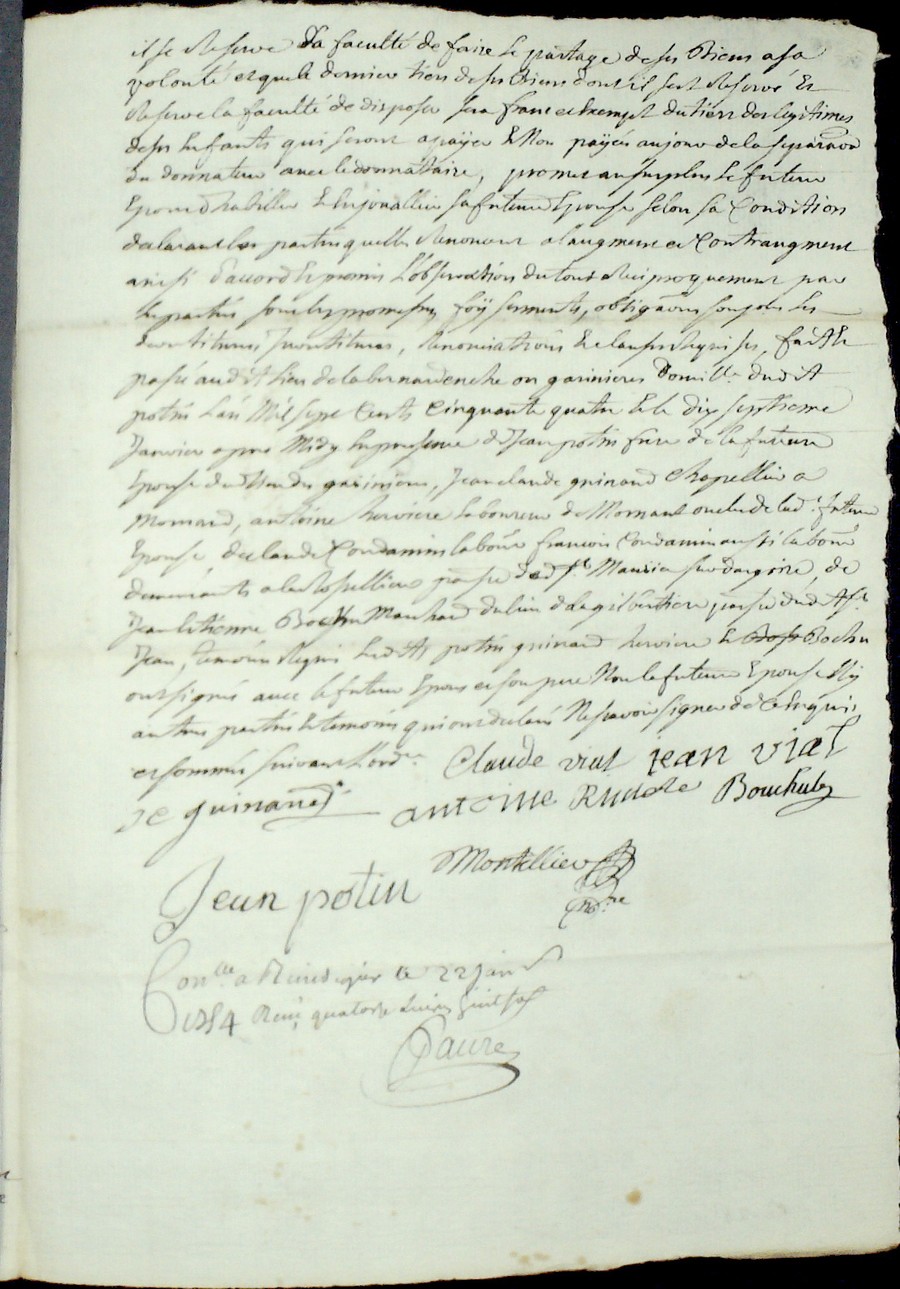 il se Reserve la faculté de faire le partage de ses Biens a sa
volonté et que le dernier tiers de ses biens dont il sest Reservé Et
Reserve la faculté de disposer sera franc et Exempt du tiers des legitimes
de ses Enfants qui seront a payer Et Non payées au jour de la separation
du donnateur avec le donnataire, promet au surplus le futeur
Epoux d'habiller Et Enjoualler sa future Epouse selon sa Condition
declarant les parties quelles Renoncent a laugment et Contraugment
ainsi d'accord Et promis L'observation du tout Reciproquement par
les parties sous les promesses, foÿ serments, obligations
Renonciations Et clauses Requises, fait Et
passé audit lieu de la ou garinieres Domille dudit
potin Lan Mil sept Cents Cinquante quatre Et le dix septieme
Janvier apres Midy En presence de Jean potin frere de la future
Epouse dudit lieu des garinieres, Jean claude guinand Chapellier a
Mornand, antoine herviere laboureur de Mornant oncle de lad.e future
Epouse, de claude Condamin labour francois Condamin aussi labour
demeurants a la Rossilliere parsse dud St Maurice sur dargoire, de
Jean Etienne Bochu Marchand du lieu de la gilbertiere parsse dud St
Jean, temoins Requis Lesdits potin guinand herviere Et Bochu
ont signés avec le futeur Epoux et son pere Non la future Epouse Ny
autres parties Et temoins qui ont declaré Ne savoir signer de ce Enquis
et sommés suivant L'ord.ce Claude vial jean vial
JC guinand antoine Bouchu
Jean potin Montellier
no.re
Con.lle a Rivedegier le 22 janv
1754 Reçu quatorze livres huit sols
Faure